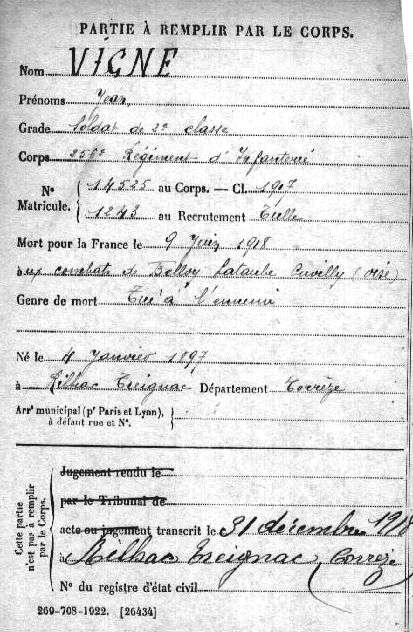 PARTIE À REMPLIR PAR LE CORPS.
Nom VIGNE
Prénoms Jean
Grade Soldat de 2e classe
Corps Régiment d'Infanterie
No 14525 au Corps. — Cl. 1917
Matricule. 1243 au Recrutement Tulle
Mort pour la France le 9 Juin 1918
aux combats de Belloy Cuvilly (Oise)
Genre de mort Tué à l'ennemi
Né le 4 Janvier 1897
à Rilhac Treignac Département Corrèze
Arrt municipal (pr Paris et Lyon),
à défaut rue et No.
Cette partie
n'est pas à remplir
par le Corps.
Jugement rendu le
par le Tribunal de
acte ou jugement transcrit le 31 décembre 1918
à Rilhac Treignac (Corrèze
No du registre d'état civil
269-708-1922. [26434]